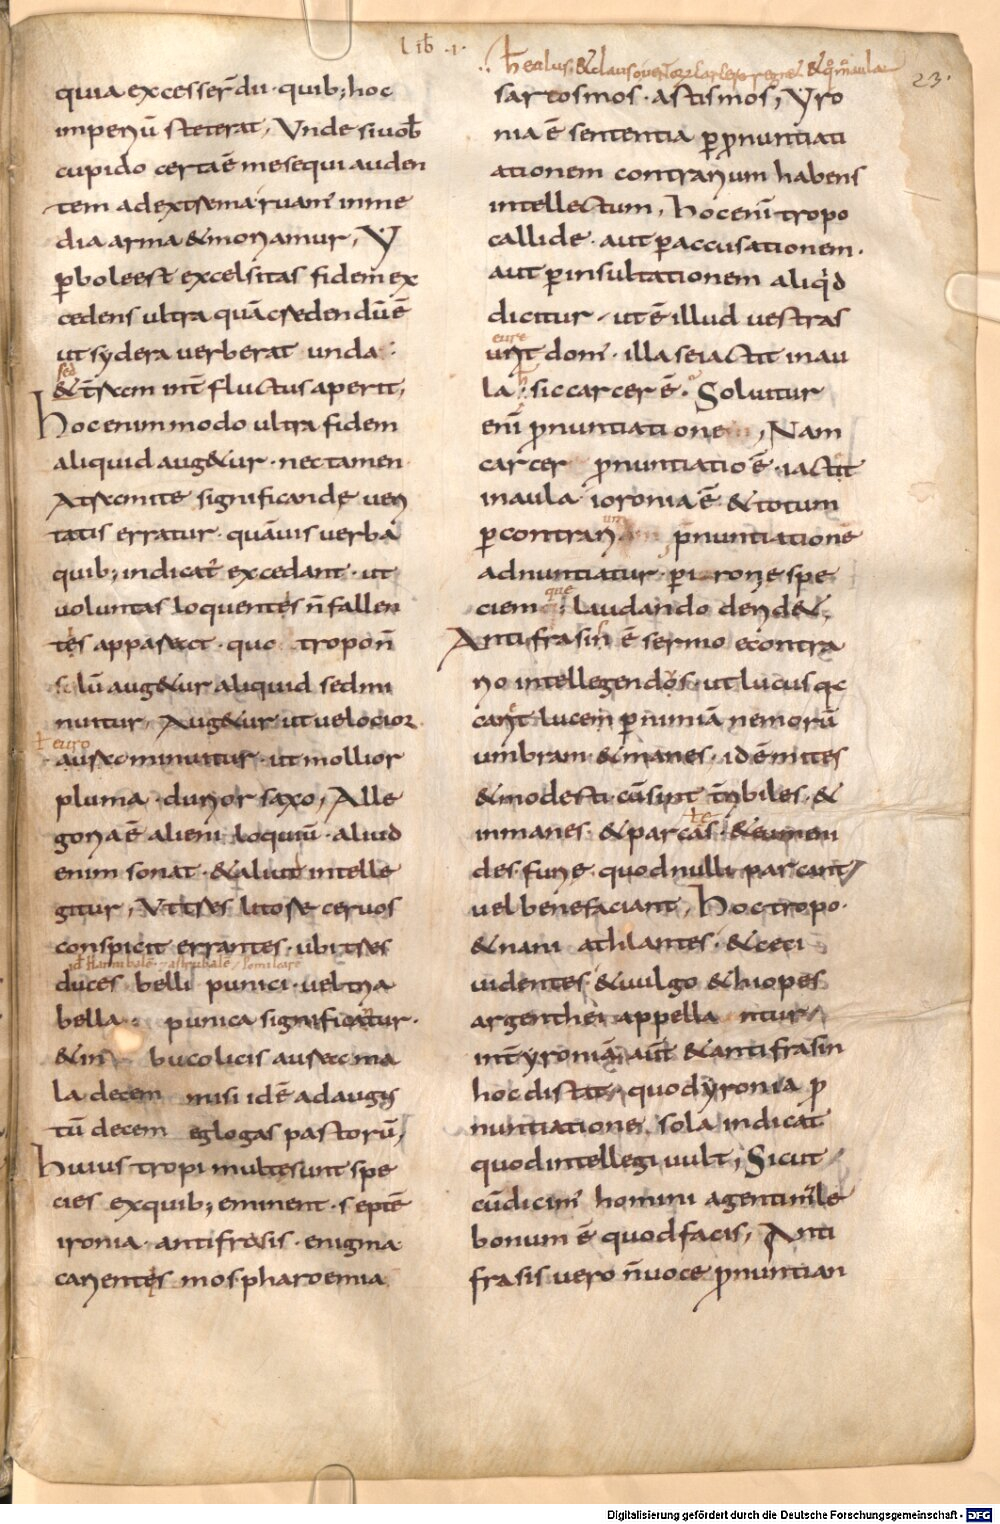 Lib ·I·
23·
quia excesserdu· quib; hoc
imperiū steterat, Unde si uob
cupido certa ē me sequi auden
tem ad extrema ruam' in me
dia arma & moriamur, Y
ꝑbole est excelsitas fidem ex
cedens ultra quā credendū ē
ut sydera uerberat unda·
sed
& t̄ram int̄ fluctus aperit,
Hoc enim modo ultra fidem
aliquid aug&ur· nec tamen
A tramite significande ueri
tatis erratur· quāuis uerba
quib; indicat excedant· ut
uoluntas loquentes n̄ fallen
tes appareat· quo tropo n̄
solū aug&ur aliquid sed mi
nuitur, Aug&ur ut uelocior
euro
aut minuitur· ut mollior
pluma· durior saxo, Alle
goria ē alieni loquiū· aliud
enim sonat· & aliut intelle
gitur, Ut tres litore ceruos
conspicit errantes· ubi tres
id Hannibalē· asdrubalē
duces belli punici· uel tria
bella punica significatur·
& in bucolicis aurea ma
la decem misi id ē ad augus
tū decem eglogas pastorū,
Huius tropi multe sunt spe
cies ex quib; eminent· septē
ironia· antifrasis· enigma
carientes mos· pharoemia
sarcosmos· astismos, Yro
nia ē sententia ꝑ ꝓnuntiati
ationem contrarium habens
intellectum, Hoc enī tropo
callide· aut ꝑ accusationem·
aut ꝑ insultationem aliqid
dicitur· ut ē illud uestras
eure
unt dom'· illa se iactit in au
la· sic carcer ē· Soluitur
enī ꝓnuntiatione, Nam
carcer ꝓnuntiatio ē· iactit
in aula ioronia ē & totum
ꝑ contrari ꝓnuntiationē
adnuntiatur· ꝑ ironie spe
que
ciem laudando derid&,
Antifrasin ē sermo econtra
rio intellegendos· ut lucus q
carit lucem ꝑ nimiā nemorū
umbram· & manes· id ē mites
& modesti· cū sint t̄ribiles· &
inmanes· & parcas· & eumeni
des· furie· quod nulli parcant
uel benefaciant, Hoc tropo·
& nani athlantes· & ceci
uidentes· & uulgo & hiopes
argenthei appellantur
int̄ yroniā· aut̄ & antifrasin
hoc distat· quod yronia ꝓ
nuntiatione sola indicat
quod intellegi uult, Sicut
cū dicim' homini agenti male
bonum ē quod facis, Anti
frasis uero n̄ uoce ꝓnuntian
Digitalisierung gefördert durch die Deutsche Forschungsgemeinschaft - DFG